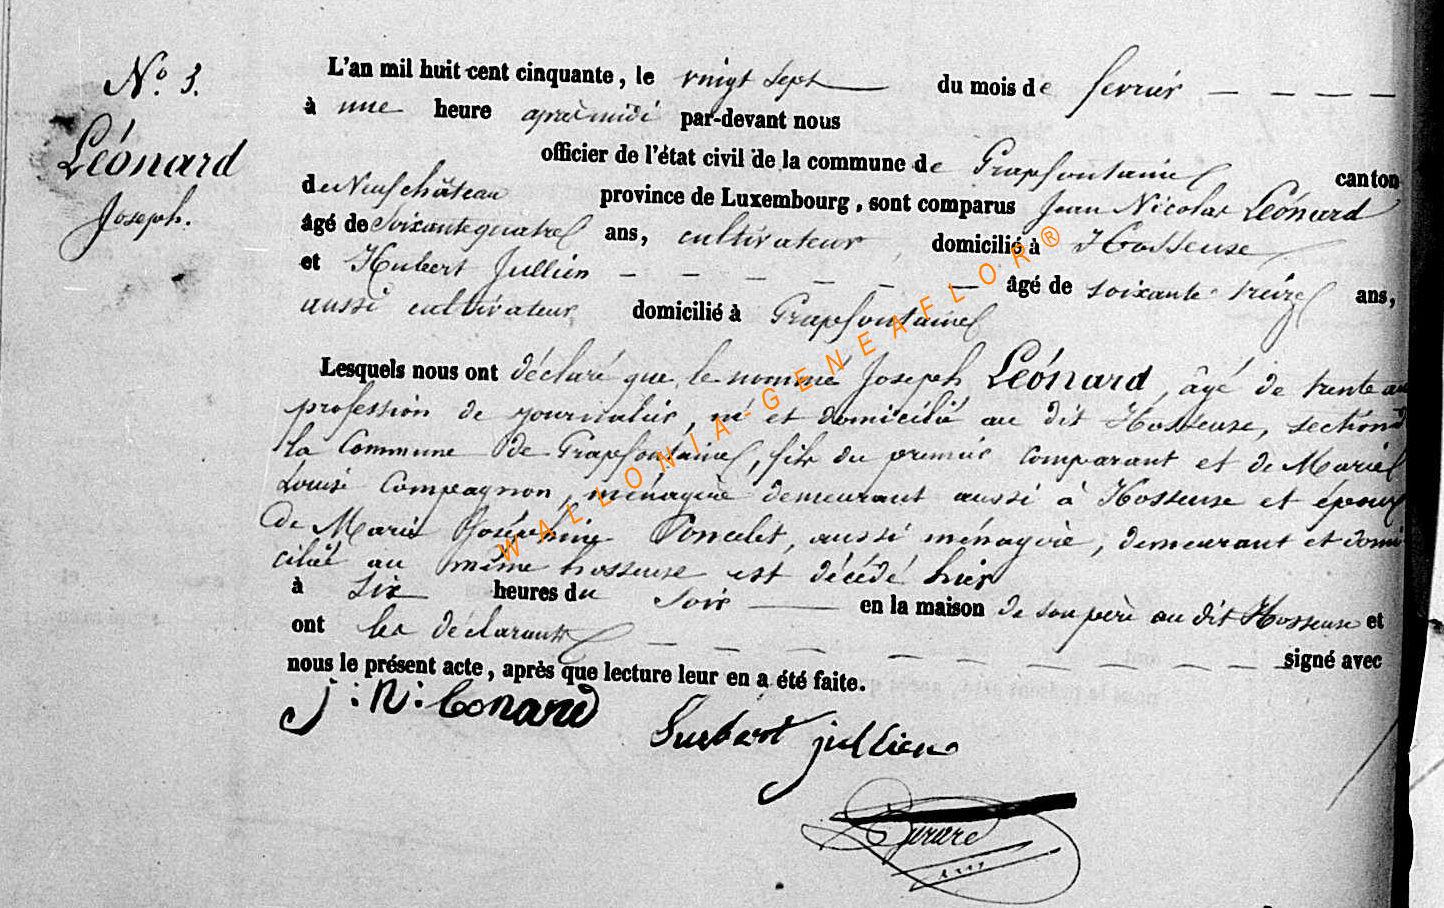 N.° 3.
Léonard
Joseph.
L'an mil huit cent cinquante, le vingt sept du mois de fevrier
à une heure après midi par-devant nous
officier de l'état civil de la commune de Grapfontaine canton
de Neufchâteau province de Luxembourg, sont comparus Jean Nicolas Léonard
âgé de soixante quatre ans, cultivateur, domicilié à Hosseuse
et Hubert Jullien âgé de soixante treize ans,
aussi cultivateur domicilié à Grapfontaine
Lesquels nous ont déclaré que le nommé Joseph Léonard, âgé de trente ans
profession de journalier, né et domicilié au dit Hosseuse, section d
la Commune de Grapfontaine, fils du premier comparant et de Marie
Louise Compagnon, ménagère demeurant aussi à Hosseuse et époux
de Marie Joséphine Poncelet, aussi ménagère, demeurant et domi
ciliée au même hosseuse est décédé hier
à six heures du soir en la maison de son père au dit Hosseuse et
ont les déclarants signé avec
nous le présent acte, après que lecture leur en a été faite.
j: N: Lonard
hubert jullien
WALLONIA-GENEAFLOR®